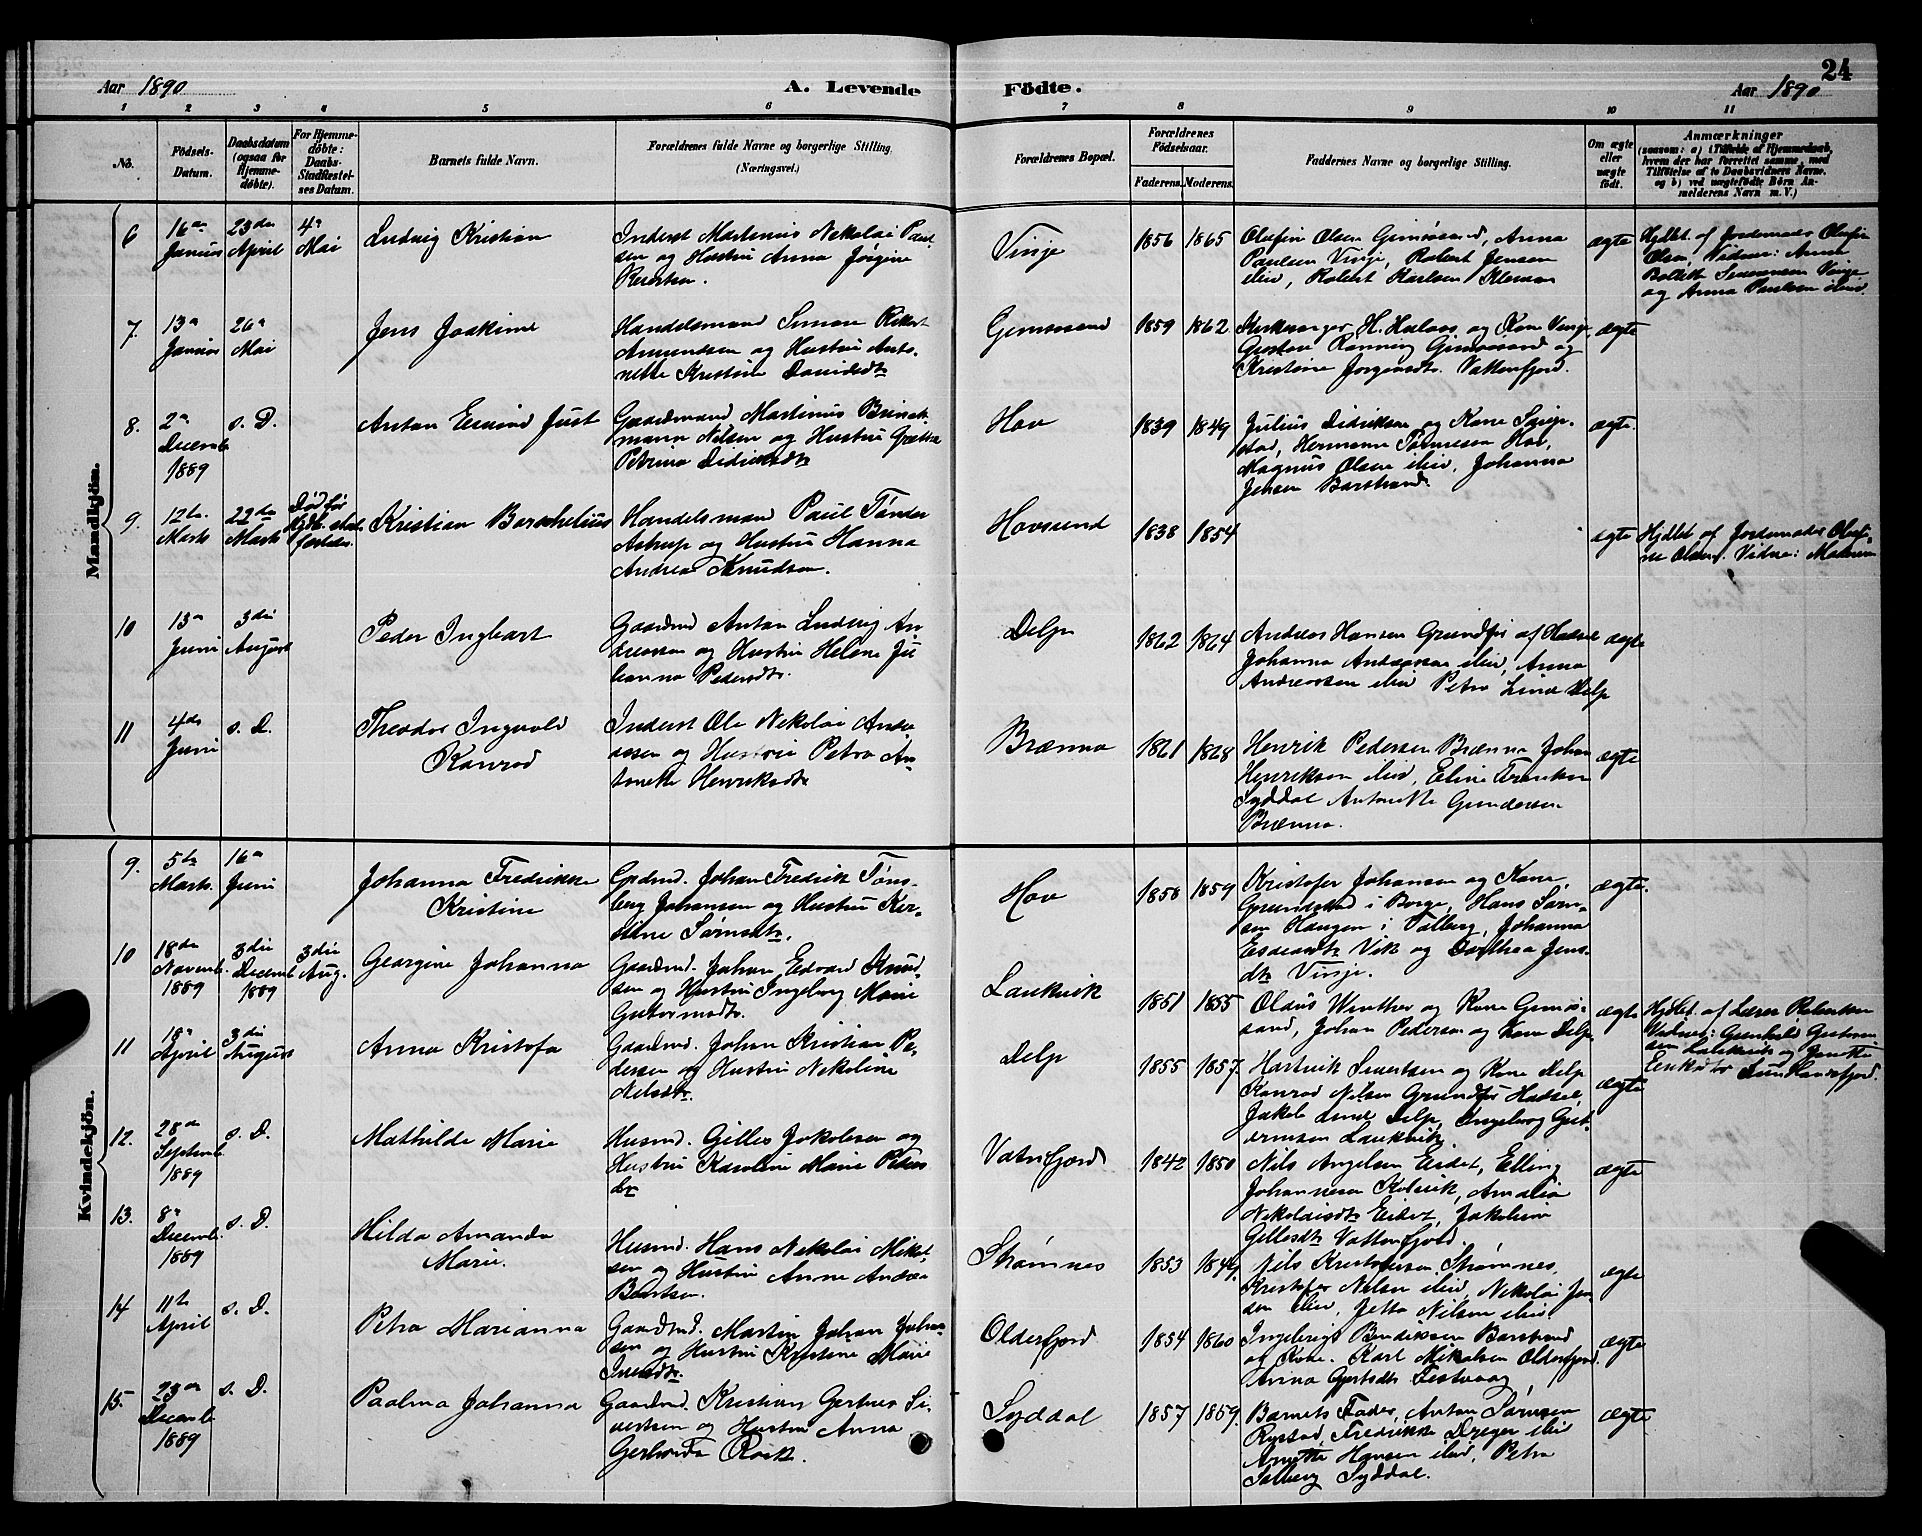 24
Aar 1890
A. Levende
Födte.
Aar 1890
1 2 3 4 5 6 7 8 9 10 11
No.
Födsels-
Datum.
Daabsdatum
(ogsaa for
Hjemme-
döbte).
For Hjemme-
döbte:
Daabs-
Stadfæstel-
ses Datum.
Barnets fulde Navn.
Forældrenes fulde Navne og borgerlige Stilling.
(Næringsvei.)
Forældrenes Bopæl.
Forældrenes
Födselsaar.
Faderens. Moderens.
Faddernes Navne og borgerlige Stilling.
Om ægte
eller
uægte
födt.
Anmærkninger
(saasom: a) i Tilfælde af Hjemmedaab,
hvem der har forrettet samme, med
Tilföielse af to Daabsvidners Navne,
og b) ved uægtefödte Börn An-
melderens Navn m. V.)
Mandkjön.
6
16de Januar
23de April
4de Mai
Ludvig Kristian
Inderst Martenius Nikolai Paul-
sen og Hustru Anna Jørgine
Vinje
1856 1865
Olufin Olsen Gimsøsand, Anna
Paulsen Vinje, Robert Jensen
ibid, Robert Karlsen
ægte
Hjdbt. af Jordemoder Olufin
Olsen, Vidner: Anna
og Anna Paulsen ibid.
7.
13de Januar
26de Mai
Jens Joakim
Handelsmand Simon Rikart
Amundsen og Hustru Anto-
nette Kristine Davidsdtr
Gimsøsand
1859 1862
Kirkesanger H. Hulaas og Kone Vinje,
Gustav Rønning Gimsøsand og
Kristine Vatterfjord.
ægte
8.
2de
Decemb
1889
s. D.
Anton Edvind Just
Gaardmand Martinus Brinch-
mann Nilsen og Hustru Grethe
Petrina Didriksdtr
Hov
1839 1849
Julius Didriksen og Kone
Hermann Tønnesen Hov,
Magnus Olsen ibid, Johanna
Jensen Barstrand.
ægte
9.
12te
Marts
22de
Marts
Død før
Kristian Borchelius
Handelsmand Paul Tønder
Astrup og Hustru Hanna
Andrea Knudsen.
Hovsund
1838 1854
ægte
Hjdbt af Jordemoder Olufi-
ne Olsen. Vidne: Moderen
10
13de
Juni
3die
August
Peder Ingbart
Gaardmd Anton Ludvig An-
dreassen og Hustru Helene Ju-
lianna Pedersdtr.
Delp
1862 1864
Andreas Hansen Grundfør af Hadsel
Johanna Andreassen ibid, Anna
Andreassen ibid Petra Lind Delp
ægte
11
4de
Juni
s. D.
Theodor Ingvald
Konrad
Inderst Ole Nikolai Andr-
easen og Hustru Petra An-
tonette Henriksdtr
Brænna
1861 1868
Henrik Pedersen Brænna, Johan
Henriksen ibid, Eline
Syddal Antonette Gundersen
Brænna.
ægte
Kvindekjön.
9.
5te
Marts
16de
Juni
Johanna Fredrikke
Kristine
Grdmd. Johan Fredrik Tøns-
berg Johansen og Hustru Kir-
stine Sørnsdtr.
Hov
1858 1859
Kristofer Johansen og Kone,
Grundstad i Borge, Hans Sørn-
sen Haugen i Valberg, Johanna
Edvardtr Vik og Dorthea Jens-
dtr Vinje.
ægte.
10
18de
Novemb.
1889
3die
Decemb
1889
3die
Aug.
Georgine Johanna
Gaardmd. Johan Edvard Knud-
sen og Hustru Ingeborg Marie
Guttormsdtr.
Laukvik
1851 1855
Olaus Winther og Kone Gimsø-
sand, Johan Pedersen og Kone Delp.
ægte
Hjdbt. af Lærer
Vidner: Gunhild
Laukvik og
11
18de
April
3die
August
Anna Kristofa
Gaardmd. Johan Kristian Pe-
dersen og Hustru Nikoline
Nilsdtr.
Delp
1855 1857.
Hartvik Sivertsen og Kone Delp
Konrad Nilsen Grundfør Hadsel,
Jakob Lind Delp, Ingeborg Gut-
ormsen Laukvik.
ægte
12.
28de
Septemb.
1889
s. D.
Mathilde Marie
Husmd. Gilles Jakobsen og
Hustru Karoline Marie Peders-
dtr
Vatnfjord
1842 1850
Nils Angelsen Eidet, Elling
Johannesen Kolvik, Amalia
Nikolaisdtr Eidet, Jakobine
Gillesdtr Vatterfjord.
ægte
13.
8de
Decemb.
1889
s. D.
Hilda Amanda
Marie.
Husmd. Hans Nikolai Mikal-
sen og Hustru Anne Andrea
Strømnes
1853 1849.
Nils Kristofersen Strømnes,
Kristofer Nilsen ibid, Nikolai Jen-
sen ibid, Jetta Nilsen ibid
ægte
14
11te
April
s. D.
Petra Marianna
Gaardmd. Martin Johan Johan-
sen og Hustru Kristine Marie
Olderfjord
1854 1860
Ingebrigt Bendiksen Barstrand
og Kone. Karl Mikalsen Olderfjord.
Anna Festvaag
ægte
15.
23de
Decemb
1889
s. D.
Paalma Johanna
Gaardmd. Kristian Gertner Si-
vertsen og Hustru Anna
Gerharda Roik.
Syddal
1857 1859.
Barnets Fader, Anton Sørnsen
Rystad, Fredrikke Dreyer ibid
Anette Hansen ibid, Petra
Solberg Syddal.
ægte